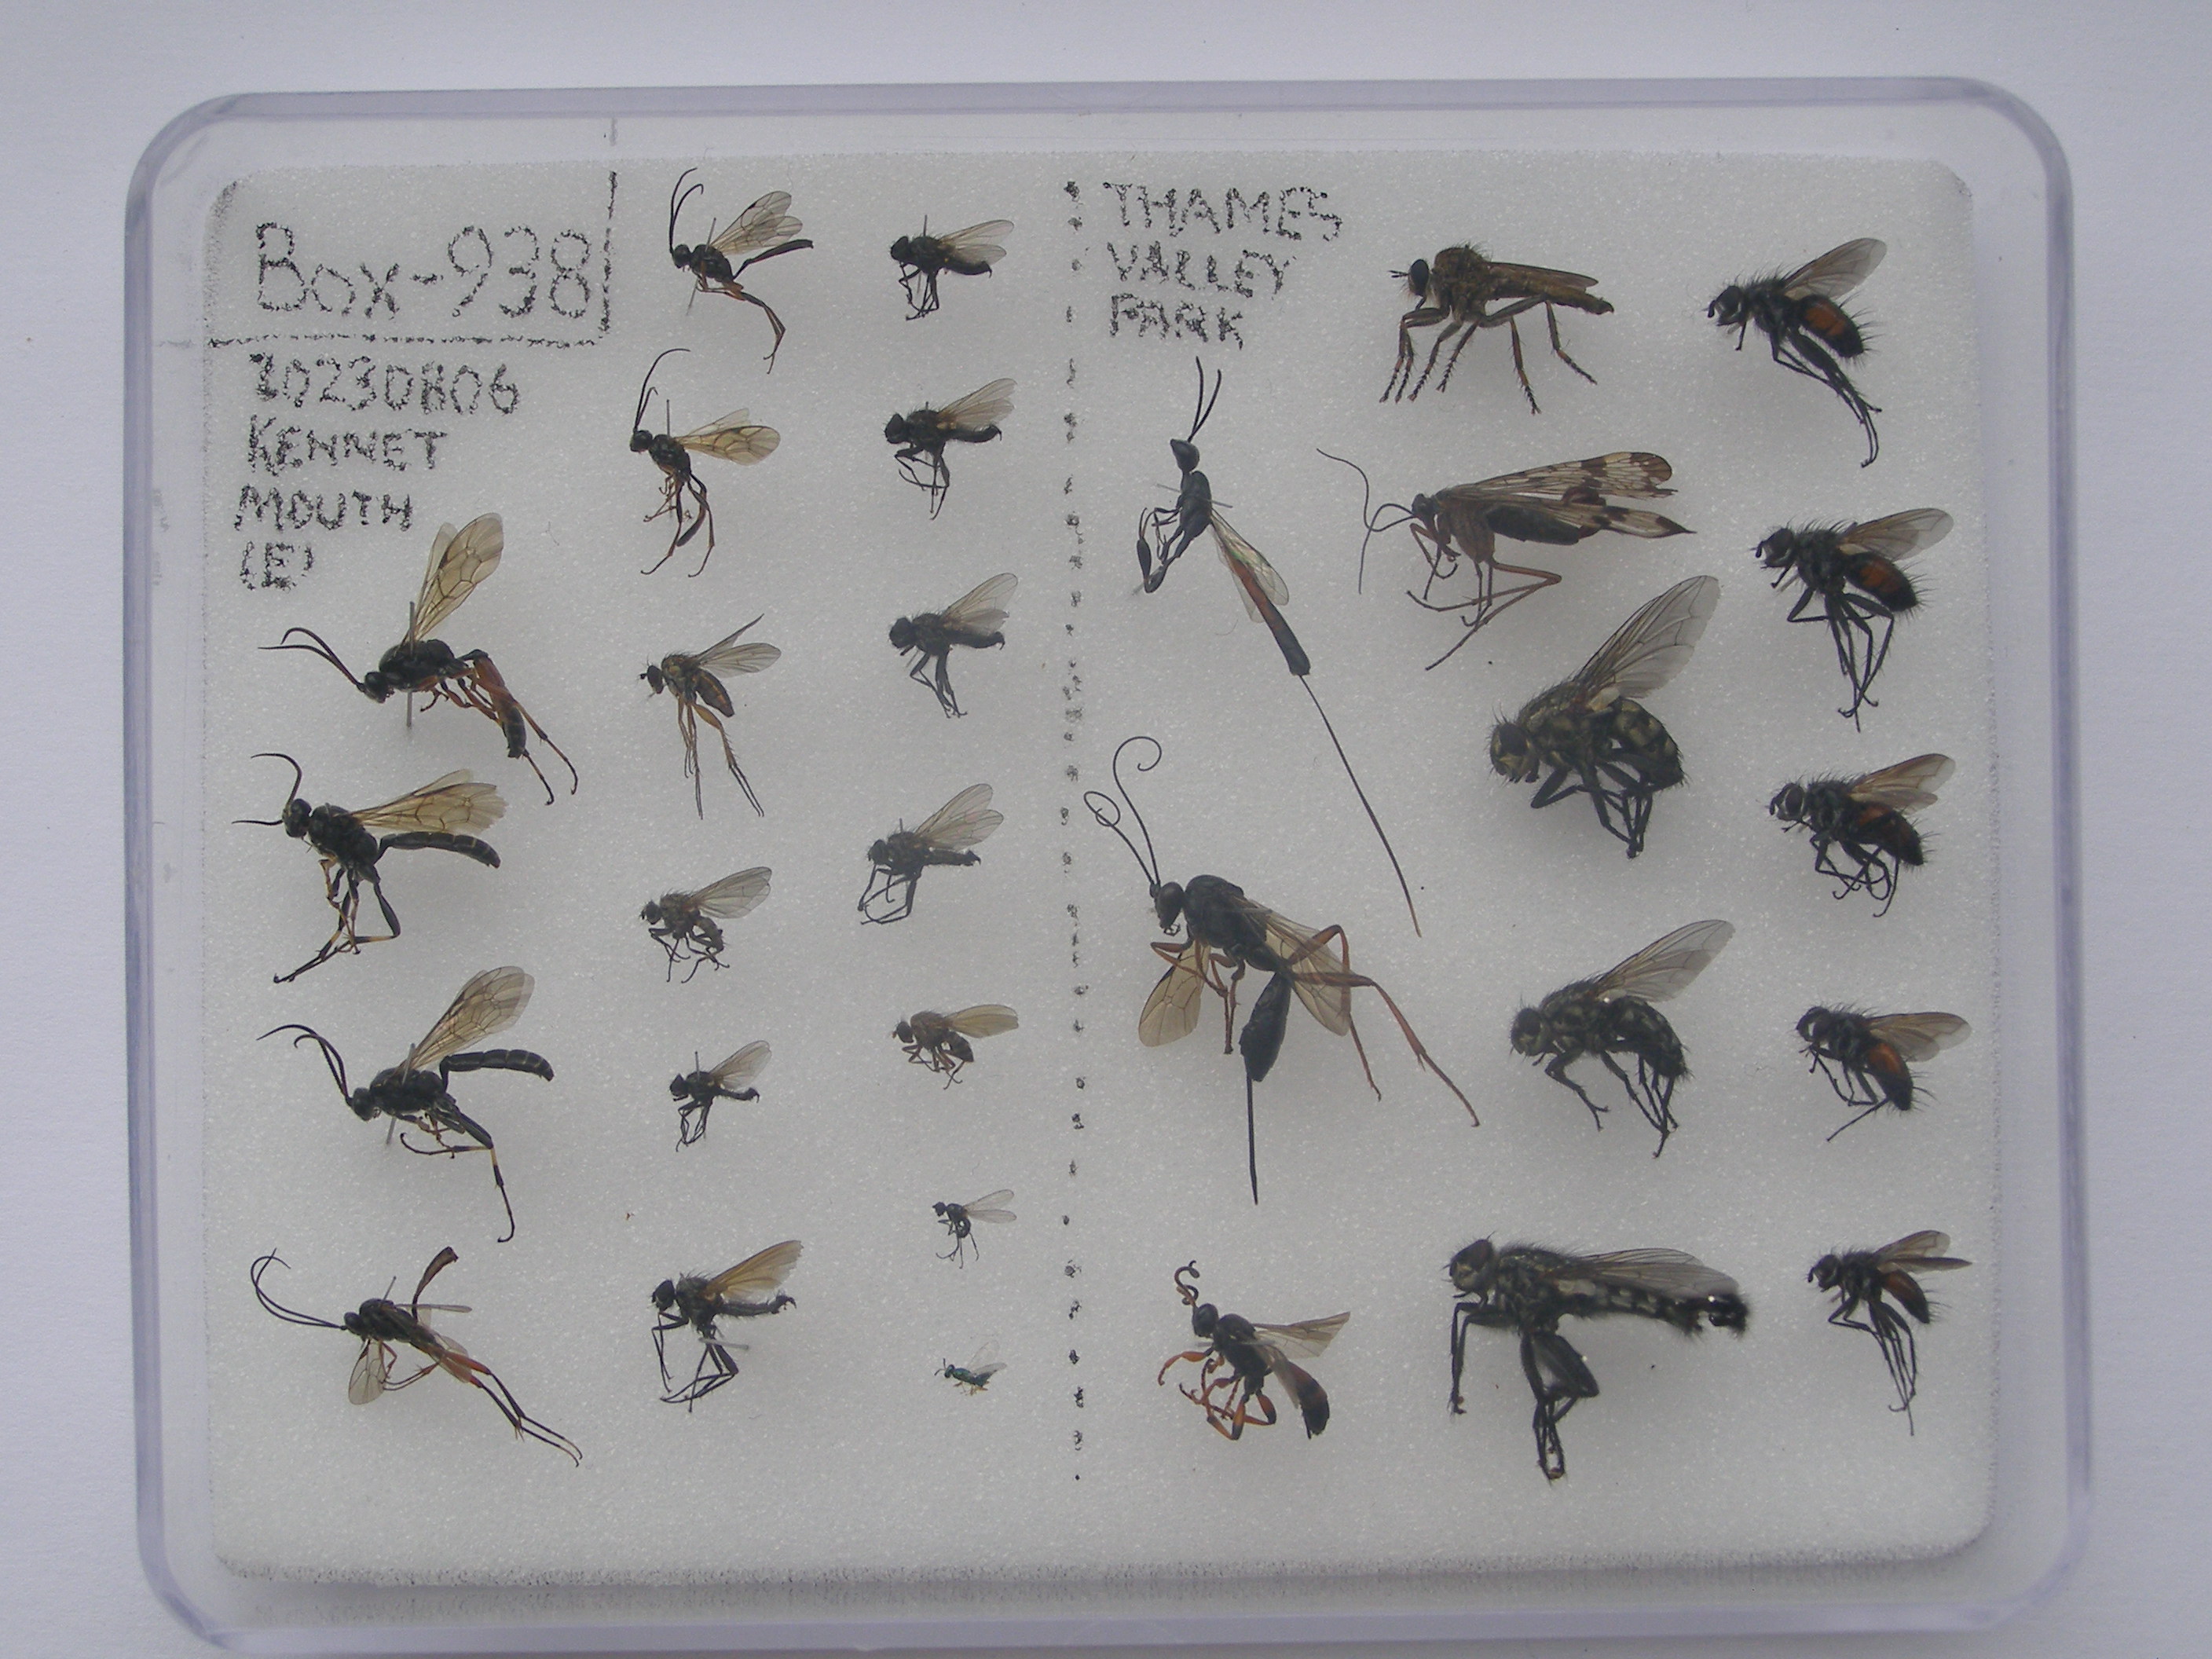 Box-938
20230806
KENNET
MOUTH
(E)
THAMES
VALLEY
PARK